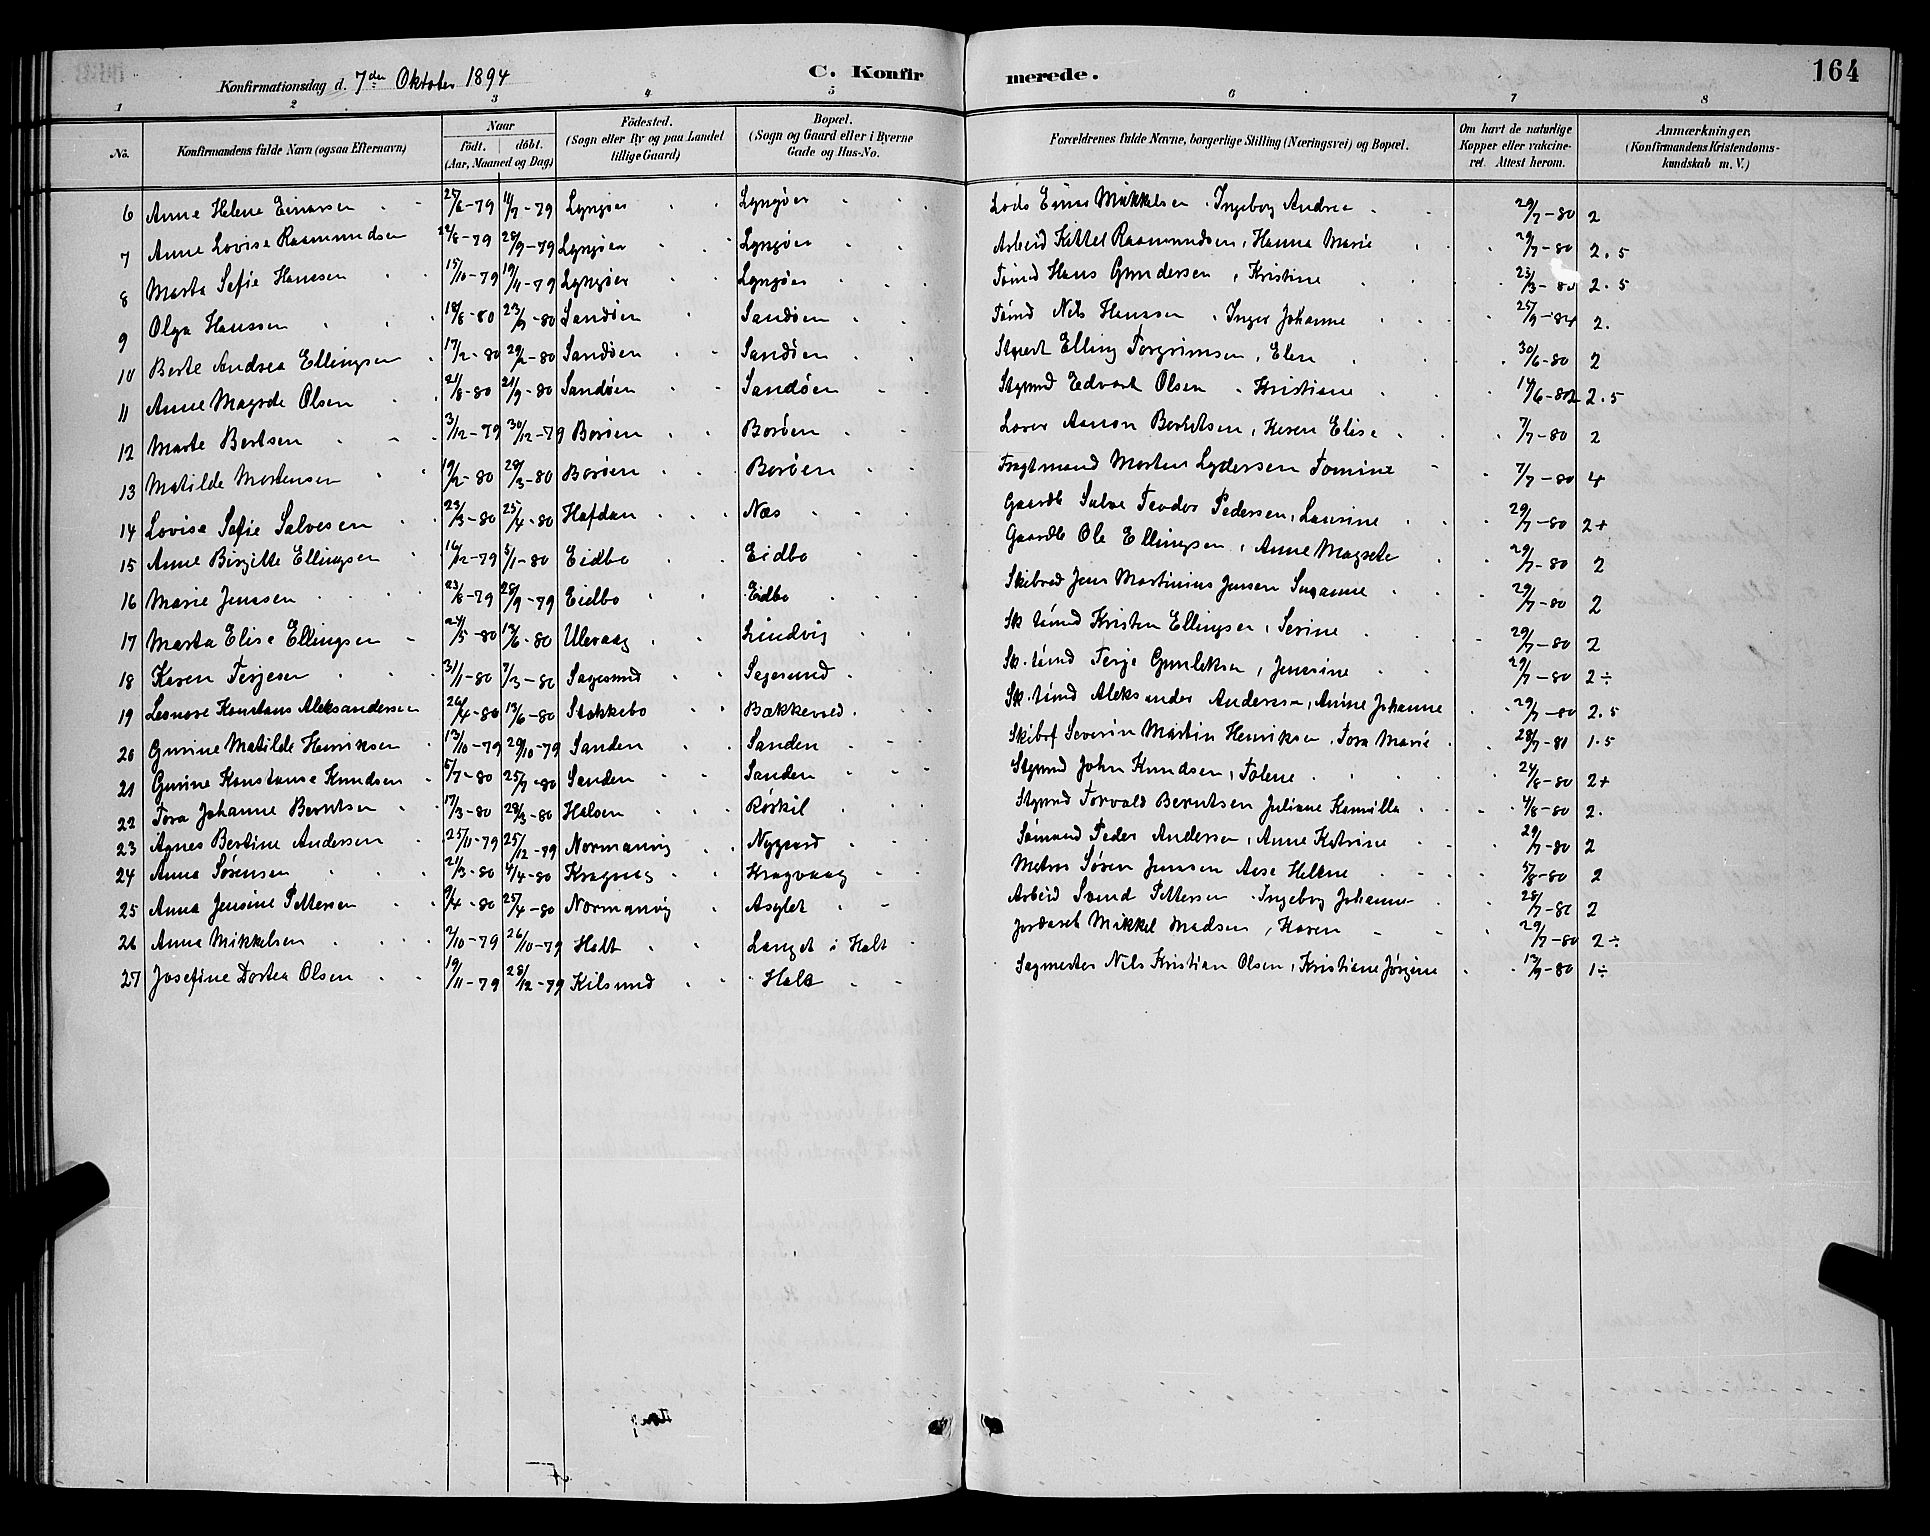 Konfirmationsdag d. 7de Oktober 1894 C. Konfirmerede. 164
1 2 3 4 5 6 7 8
No. Konfirmandens fulde Navn (ogsaa Efternavn) Naar født. døbt. (Aar, Maaned og Dag) Födested. (Sogn eller By og paa Landet tillige Gaard) Bopæl. (Sogn og Gaard eller i Byerne Gade og Hus-No. Forældrenes fulde Navne, borgerlige Stilling (Næringsvei) og Bopæl. Om havt de naturlige Kopper eller vakcineret. Attest herom. Anmærkninger, (Konfirmandens Kristendomskundskab m. V.)
6 Anne Helene Einarsen 25/6-79 11/7-79 Lyngøer Lyngøer Lods Einar Mikkelsen, Ingeborg Andrea 29/7-80 2
7 Anne Lovise Rasmundsen 22/8-79 28/9-79 Lyngøer Lyngøer Arbeid Kittel Raamundsen, Hanna Marie 29/7-80 2.5
8 Marta Sofie Hansen 15/10-79 19/11-79 Lyngøer Lyngøer Tømd Hans Gundersen, Kristine 23/3-80 2.5
9 Olga Hanssen 18/8-80 23/9-80 Sandøen Sandøen Tømd Nils Hanssen, Inger Johanne 25/9-84 2.
10 Berte Andrea Ellingsen 17/2-80 29/2-80 Sandøen Sandøen Elling Torgrimsen, Elen 30/6-80 2
11 Anne Magrde Olsen 21/8-80 21/9-80 Sandøen Sandøen Stymd Edvart Olsen, Kristiane 14/6-82 2.5
12 Marte Bertsen 3/12-79 30/12-79 Borøen Borøen Aanon Berhtsen, Karen Elise 7/7-80 2
13 Matilde Mortensen 19/2-80 28/3-80 Borøen Borøen Fragtmand Morten Lydersen Tomine 7/7-80 4
14 Lovisa Sofie Salvesen 23/3-80 25/4-80 Hafdan Næs Gaardb Salve Teodor Pedersen, Laurine 29/7-80 2+
15 Anne Birgitte Ellingsen 16/12-79 5/1-80 Eidbo Eidbo Gaardb Ole Ellingsen, Anne Magrete 29/7-80 2
16 Marie Jensen 23/8-79 28/9-79 Eidbo Eidbo Jens Martinius Jensen Susanne 29/7-80 2
17 Marta Elise Ellingsen 24/5-80 13/6-80 Ulevaag Lindvig Sk. tømd Kristen Ellingsen, Serine 29/7-80 2
18 Karen Terjesen 31/1-80 7/3-80 Sagesund Sagesund Sk. tømd Terje Gunleksen, Jensine 29/7-80 2÷
19 Leonore Konstans Aleksandersen 26/4-80 13/6-80 Stokkebo Bækkevold Sk. tømd Aleksander Andersen, Anine Johanne 29/7-80 2.5
20 Gurine Matilde Henriksen 13/10-79 29/10-79 Sanden Sanden Skibsf Severin Martin Henriksen, Tora Marie 28/7-81 1.5
21 Gurine Konstanse Knudsen 5/7-80 25/7-80 Sanden Sanden Stymd John Knudsen, Tolene 24/8-80 2+
22 Tora Johanne Berntsen 17/3-80 28/3-80 Halsen Røskil Stymd Torvald Berntsen Juliane Kamilla 4/8-80 2.
23 Agnes Bertine Andersen 25/11-79 25/12-79 Normanvig Nygaard Sømand Peder Andersen, Anne Katrine 29/7-80 2
24 Anna Sørensen 21/3-80 4/4-80 Kragvag Kragvaag Matros Søren Jensen Aase Helene 5/8-80 2
25 Anna Jensine Pettersen 9/4-80 25/4-80 Normanvig Asglet Arbeid Svend Pettersen, Ingeborg Johanne 28/7-80 2
26 Anna Mikkelsen 2/10-79 26/10-79 Holt Langet i Holt Mikkel Madsen, Karen 29/7-80 2÷
27 Josefine Dortea Olsen 19/11-79 28/12-79 Kilsund Holt Sagmester Nils Kristian Olsen, Kristiane Jørgine 13/9-80 1÷